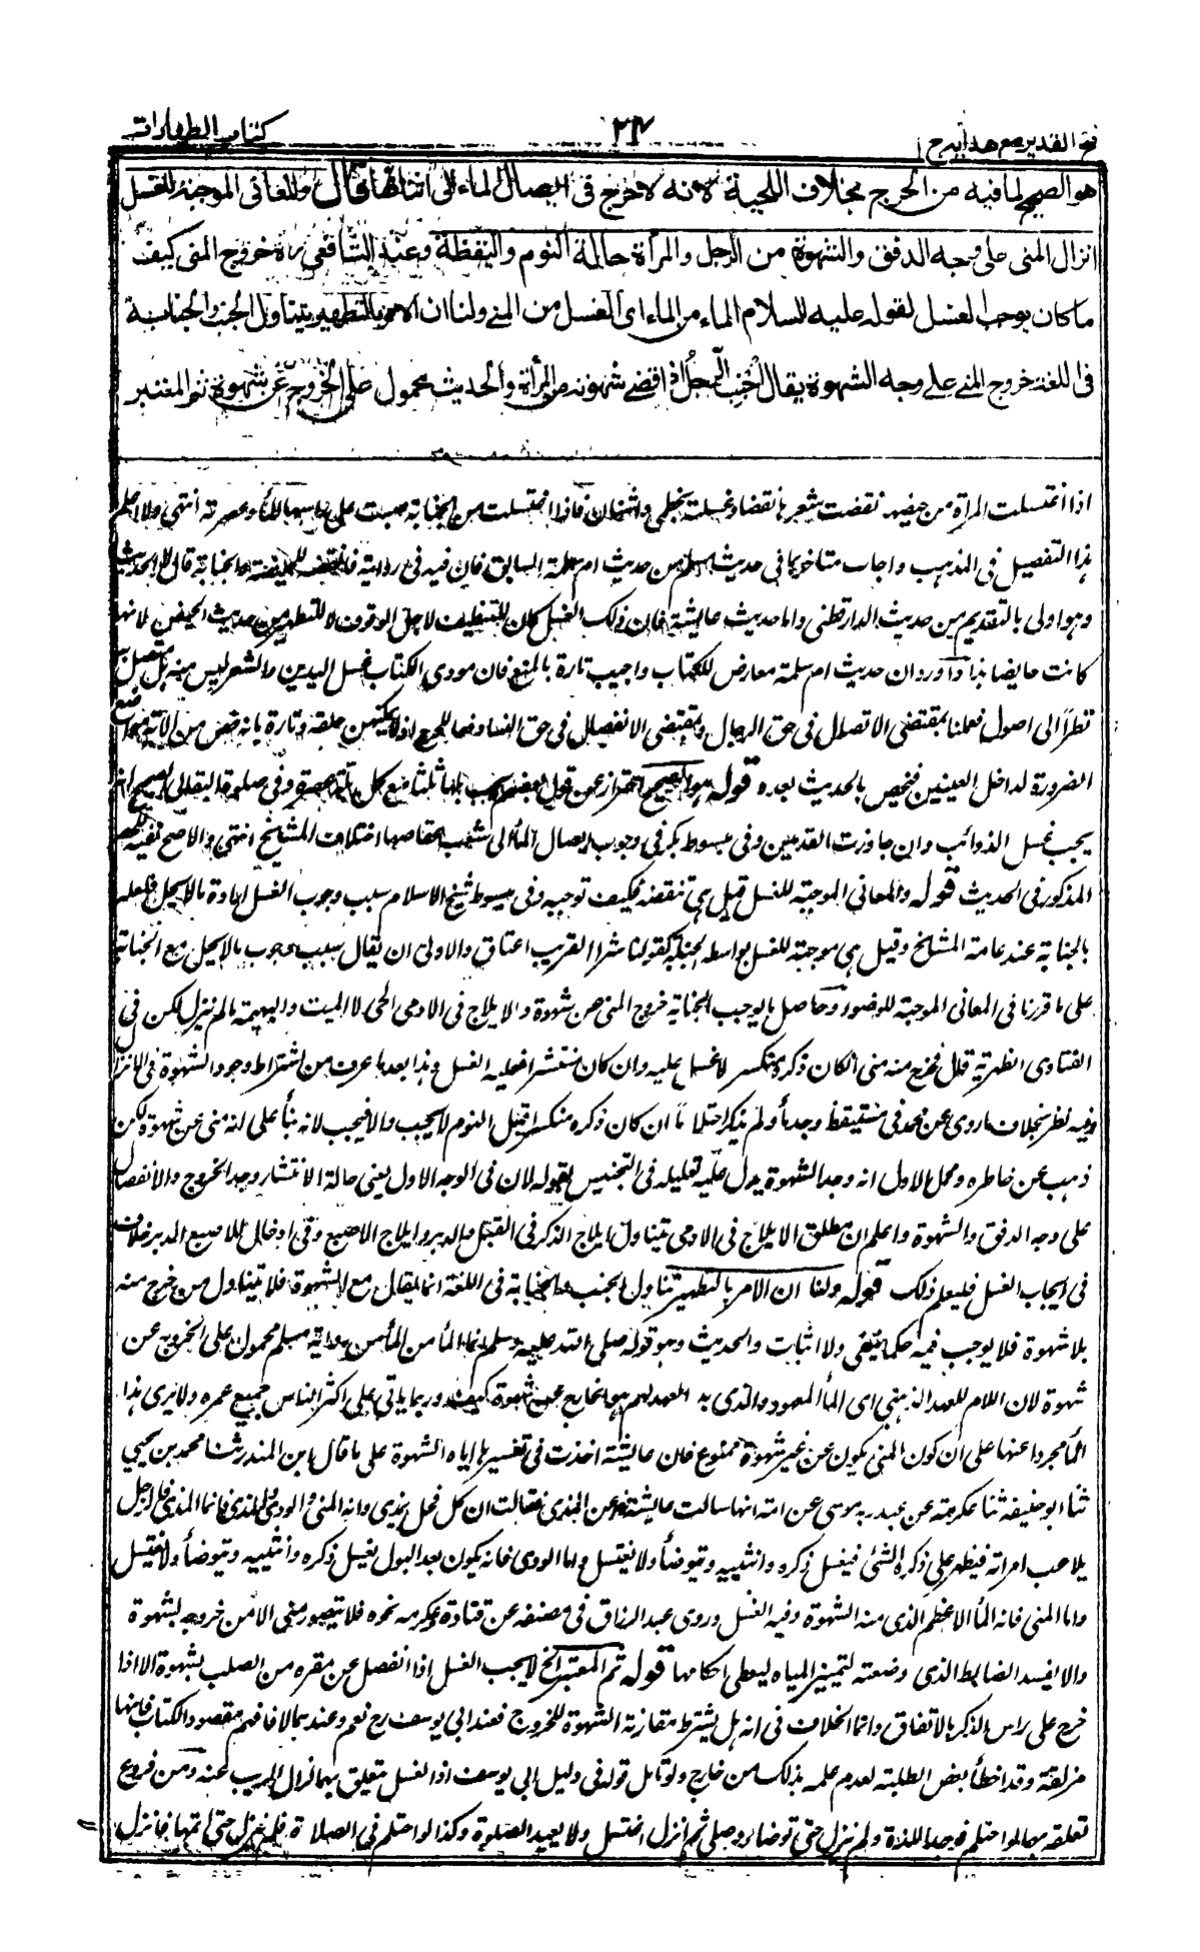 فتح القدير مع هدايه ج ١
٢٤
كتاب الطهارات
هو الصحيح لما فيه من الحرج بخلاف اللحية لانه لا حرج في ايصال الماء الى اثنائها قال والمعاني الموجبة للغسل
انزال المني على وجه الدفق والشهوة من الرجل والمرأة حالة النوم واليقظة وعند الشافعي ره خروج المني كيف
ما كان يوجب الغسل لقوله عليه السلام الماء من الماء اى الغسل من المني ولنا ان الامر بالتطهير يتناول الجنب والجنابة
في اللغة خروج المني على وجه الشهوة يقال اجنب الرجل اذا قضى شهوته من المرأة والحديث محمول على الخروج عن شهوة ثم المعتبر
اذا اغتسلت المرأة من حيضها نقضت شعرها نقضا وغسلته بخطمي واشنان فاذا اغتسلت من الجنابة صبت على راسها الماء وعصرته انتهى ولا اعلم
هذا التفصيل في المذهب واجاب متاخر كما في حديث مسلم من حديث ام سلمة السابق فان فيه في رواية فانقضه للحيضة والجنابة قال لا الحديث
وهو اولى بالتقديم من حديث الدارقطني واما حديث عايشة فان ذلك الغسل كان للتنظيف لاجل الوقوف لا للتطهير من حديث الحيض لانها
كانت حايضا هذا واورد ان حديث ام سلمة معارض للكتاب واجيب تارة بالمنع فان مودى الكتاب غسل البدن والشعر ليس منه بل متصل به
نظرا الى اصول فعملنا بمقتضى الاتصال في حق الرجال وبمقتضى الانفصال في حق النساء دفعا للحرج اذ لا يمكنهن حلقه وتارة بانه خص من الآية مواضع
الضرورة كداخل العينين فيخص بالحديث بعده قوله هو الصحيح احتراز عن قول بعضهم يجب بلها ثلثا مع كل بلة عصرة وفي صلوة البقالي الصحيح انه
يجب غسل الذوائب وان جاوزت القدمين وفي مبسوط بكر في وجوب ايصال الماء الى شعب عقاصها اختلاف المشايخ انتهى والاصح نفيه للحصر
المذكور في الحديث قوله والمعاني الموجبة للغسل قيل هي تنقضه فكيف توجبه وفي مبسوط شيخ الاسلام سبب وجوب الغسل ارادة ما لا يحل فعله
بالجنابة عند عامة المشايخ وقيل هي موجبة للغسل بواسطة الجنابة كقولنا شراء القريب اعتاق والاولى ان يقال سبب وجوب ما لا يحل مع الجنابة
على ما قررنا في المعاني الموجبة للوضوء وحاصل ما يوجب الجنابة خروج المني عن شهوة والايلاج في الادمي الحي لا الميت والبهيمة ما لم ينزل لكن في
الفتاوى الظهيرية قال فخرج منه مني ان كان ذكره منكسر لا غسل عليه وان كان منتشرا فعليه الغسل وهذا بعد ما عرف من اشتراط وجود الشهوة في الانزال
وفيه نظر بخلاف ما روى عن محمد في مستيقظ وجد ماء ولم يتذكر احتلاما ان كان ذكره منكسرا قبل النوم لا يجب والا فيجب لانه بناء على انه مني عن شهوة لكن
ذهب عن خاطره ومحمل الاول انه وجد الشهوة يدل عليه تعليله في التجنيس بقوله لان في الوجه الاول يعني حالة الانتشار وجد الخروج والانفصال
على وجه الدفق والشهوة واعلم ان مطلق الايلاج في الادمي يتناول ايلاج الذكر في القبل والدبر وايلاج الاصبع وفي ادخال الاصبع الدبر خلاف
في ايجاب الغسل فليعلم ذلك قوله ولنا ان الامر بالتطهير تناول الجنب والجنابة في اللغة انما يقال مع الشهوة فلا يتناول من خرج منه
بلا شهوة فلا يوجب فيه حكما بنفي ولا اثبات والحديث وهو قوله صلى الله عليه وسلم انما الماء من الماء من رواية مسلم محمول على الخروج عن
شهوة لان اللام للعهد الذهني اى الماء المعهود والذي به العهد لهم هو الخارج عن شهوة كيف وربما ياتي على اكثر الناس جميع عمره ولا يرى هذا
الماء مجردا عنها على ان كون المني يكون عن غير شهوة ممنوع فان عايشة اخذت في تفسيرها اياه الشهوة على ما قال ابن المنذر ثنا محمد بن يحيى
ثنا ابو حنيفة ثنا عكرمة عن عبد ربه موسى عن امه انها سالت عايشة عن المذي فقالت ان كل فحل يمذي وانه المني والودي والمذي فاما المذي فالرجل
يلاعب امراته فيظهر على ذكره الشئ فيغسل ذكره وانثييه ويتوضأ ولا يغتسل واما الودي فانه يكون بعد البول يغسل ذكره وانثييه ويتوضأ ولا يغتسل
واما المني فانه الماء الاعظم الذي منه الشهوة وفيه الغسل وروى عبد الرزاق في مصنفه عن قتادة وعكرمه نحوه فلا يتصور مني الا من خروجه بشهوة
والا يفسد الضابط الذي وضعته لتميز المياه ليعطى احكامها قوله ثم المعتبر الخ لا يجب الغسل اذا انفصل عن مقره من الصلب بشهوة الا اذا
خرج على راس الذكر بالاتفاق وانما الخلاف في انه هل يشترط مقارنة الشهوة للخروج فعند ابي يوسف رح نعم وعندهما لا فافهم مقصود الكتاب فانها
مزلقة وقد اخطأ بعض الطلبة لعدم علمه بذلك من خارج ولو تامل قوله في دليل ابي يوسف اذا الغسل متعلق بهما لزال الريب عنه ومن فروع
تعلقه بهما لو احتلم فوجد اللذة ولم ينزل حتى توضأ وصلى ثم انزل اغتسل ولا يعيد الصلوة وكذا لو احتلم في الصلاة فلم ينزل حتى اتمها فانزل